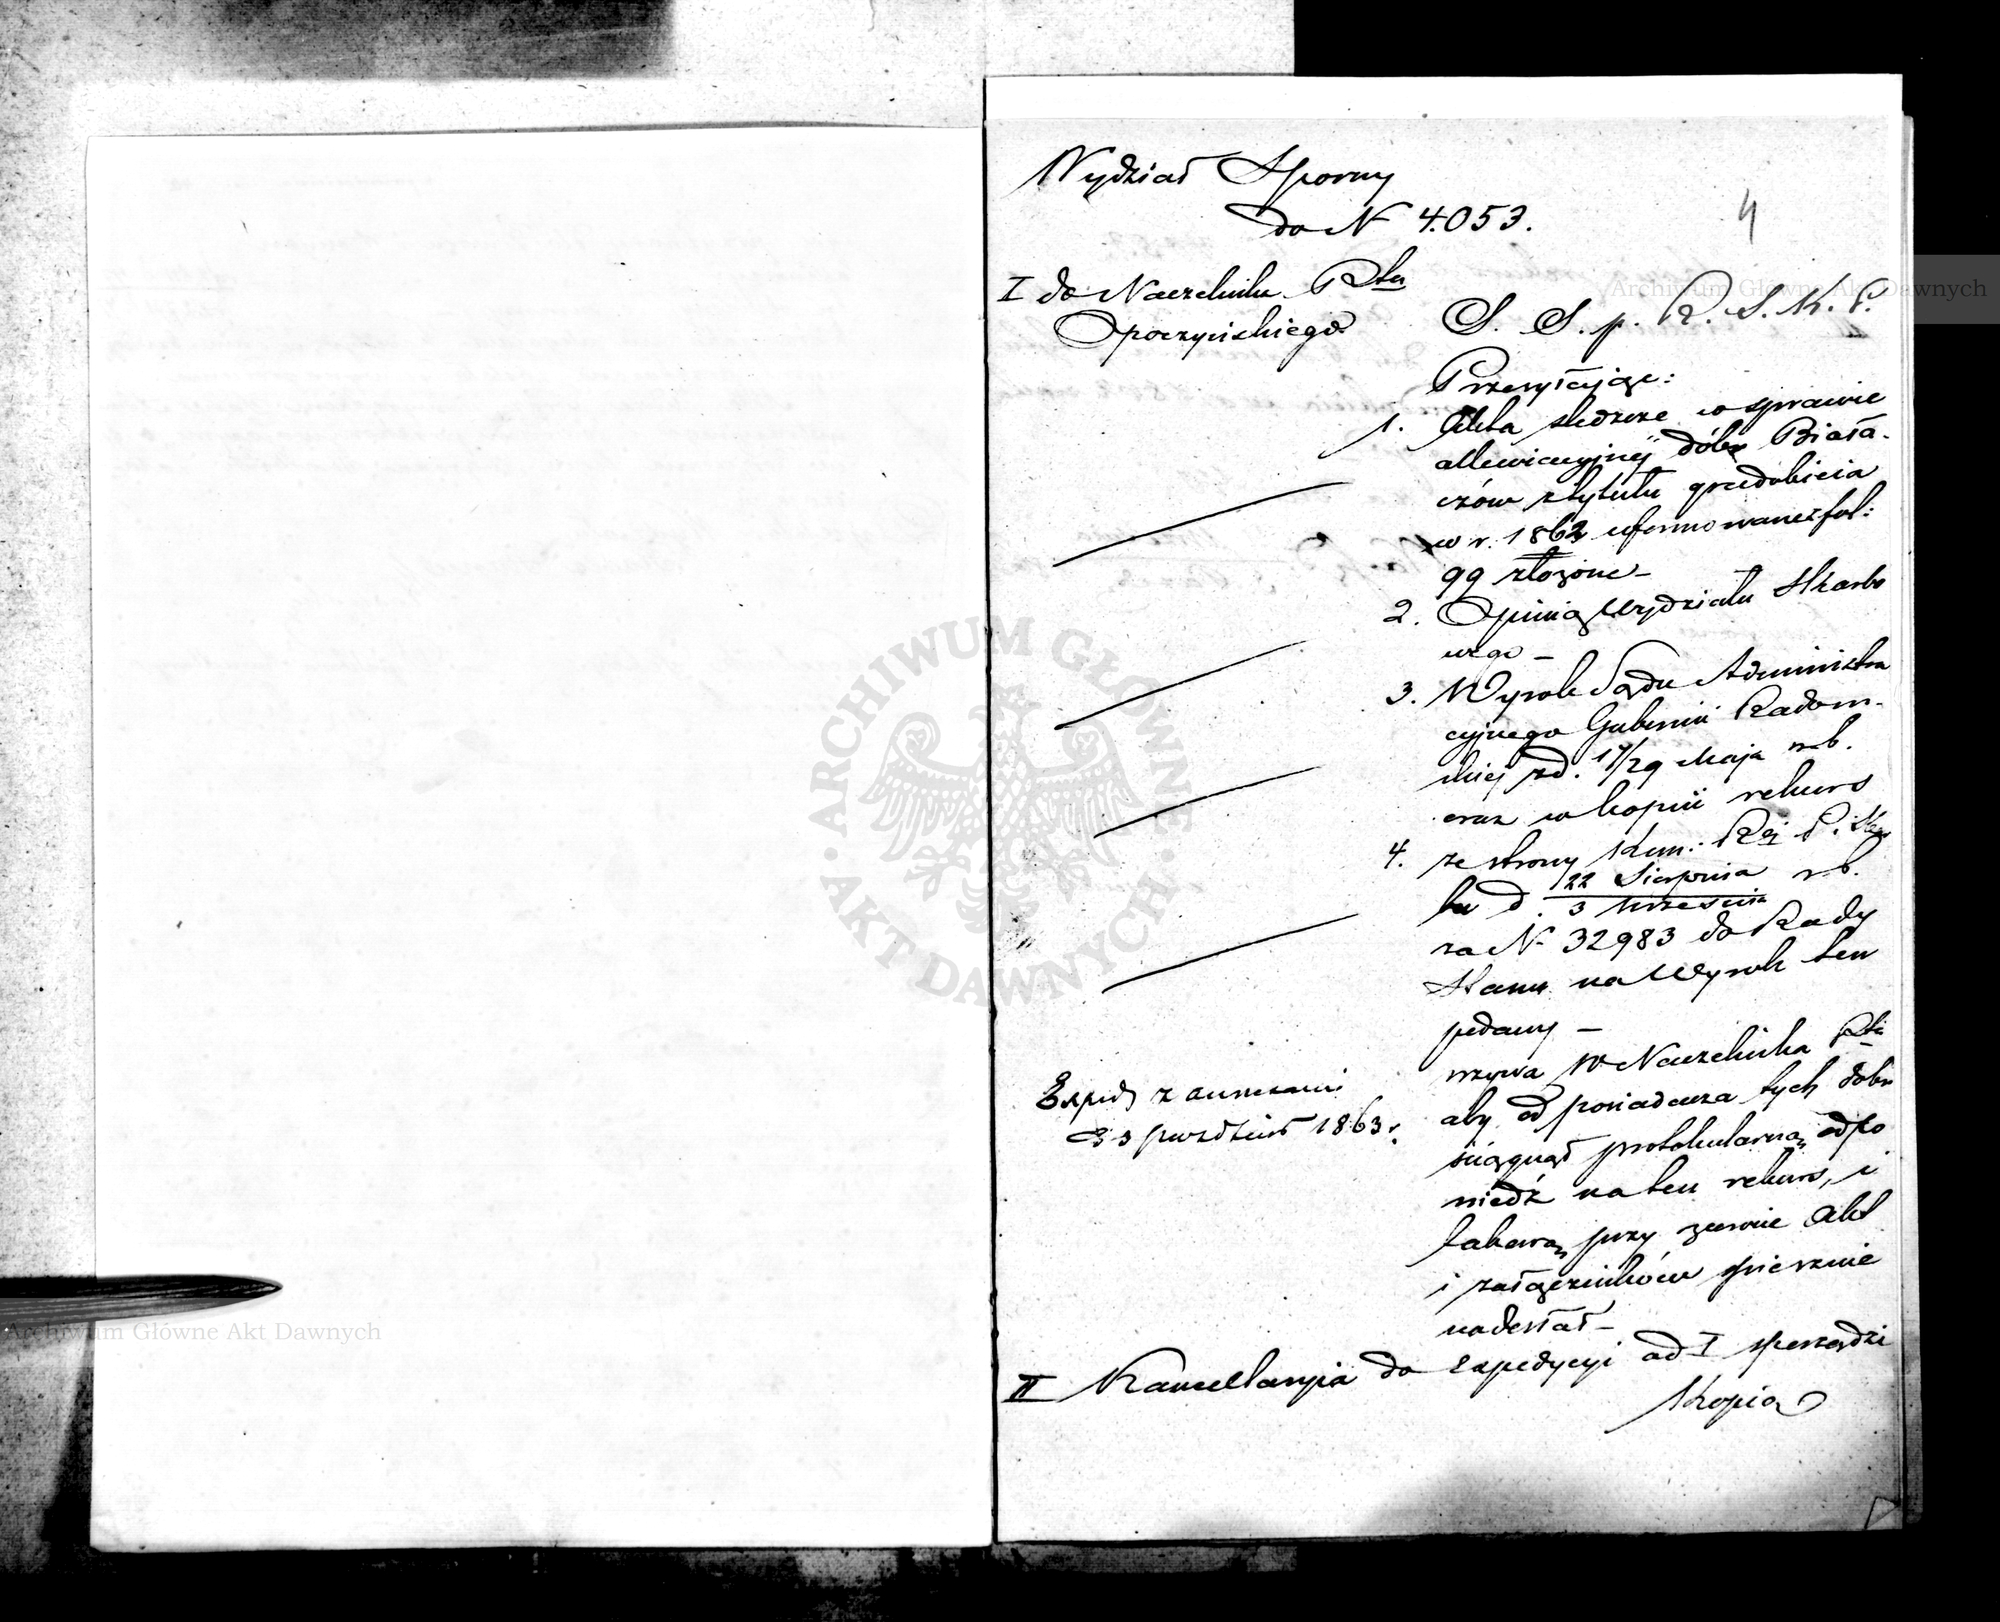 Wydział Sporny
do N 4.053.
4
I do Naczelnika Ptu
Opoczyńskiego.
S. S. p. R. S. K. P.
Przesyłając:
1. Akta śledcze w sprawie
allewiacyjnej dóbr Biała-
czów z tytułu gradobicia
w r. 1862 uformowane z fol:
99 złożone –
2. Opinią Wydziału Skarbo
wego –
3. Wyrok Sądu Administra
cyjnego Gubernii Radom-
skiej z d. 17/29 Maja r. b.
oraz w kopii rekurs
4. ze strony Kom: Rej P. i Skar
bu d. 22 Sierpnia / 3 Września r. b.
za N 32983 do Rady
Stanu na Wyrok ten
podany –
wzywa W Naczelnika Ptu
aby od posiadacza tych dóbr
ściągnął protokularną odpo
wiedź na ten rekurs, i
takową przy zwrocie Akt
i załączników spiesznie
nadesłał –
Exped z annexami
d 3 paździer 1863 r.
II Kancellaryia do expedycyi ad I sporządzi
Kopią
Archiwum Główne Akt Dawnych
ARCHIWUM GŁÓWNE
· AKT DAWNYCH ·
Archiwum Główne Akt Dawnych